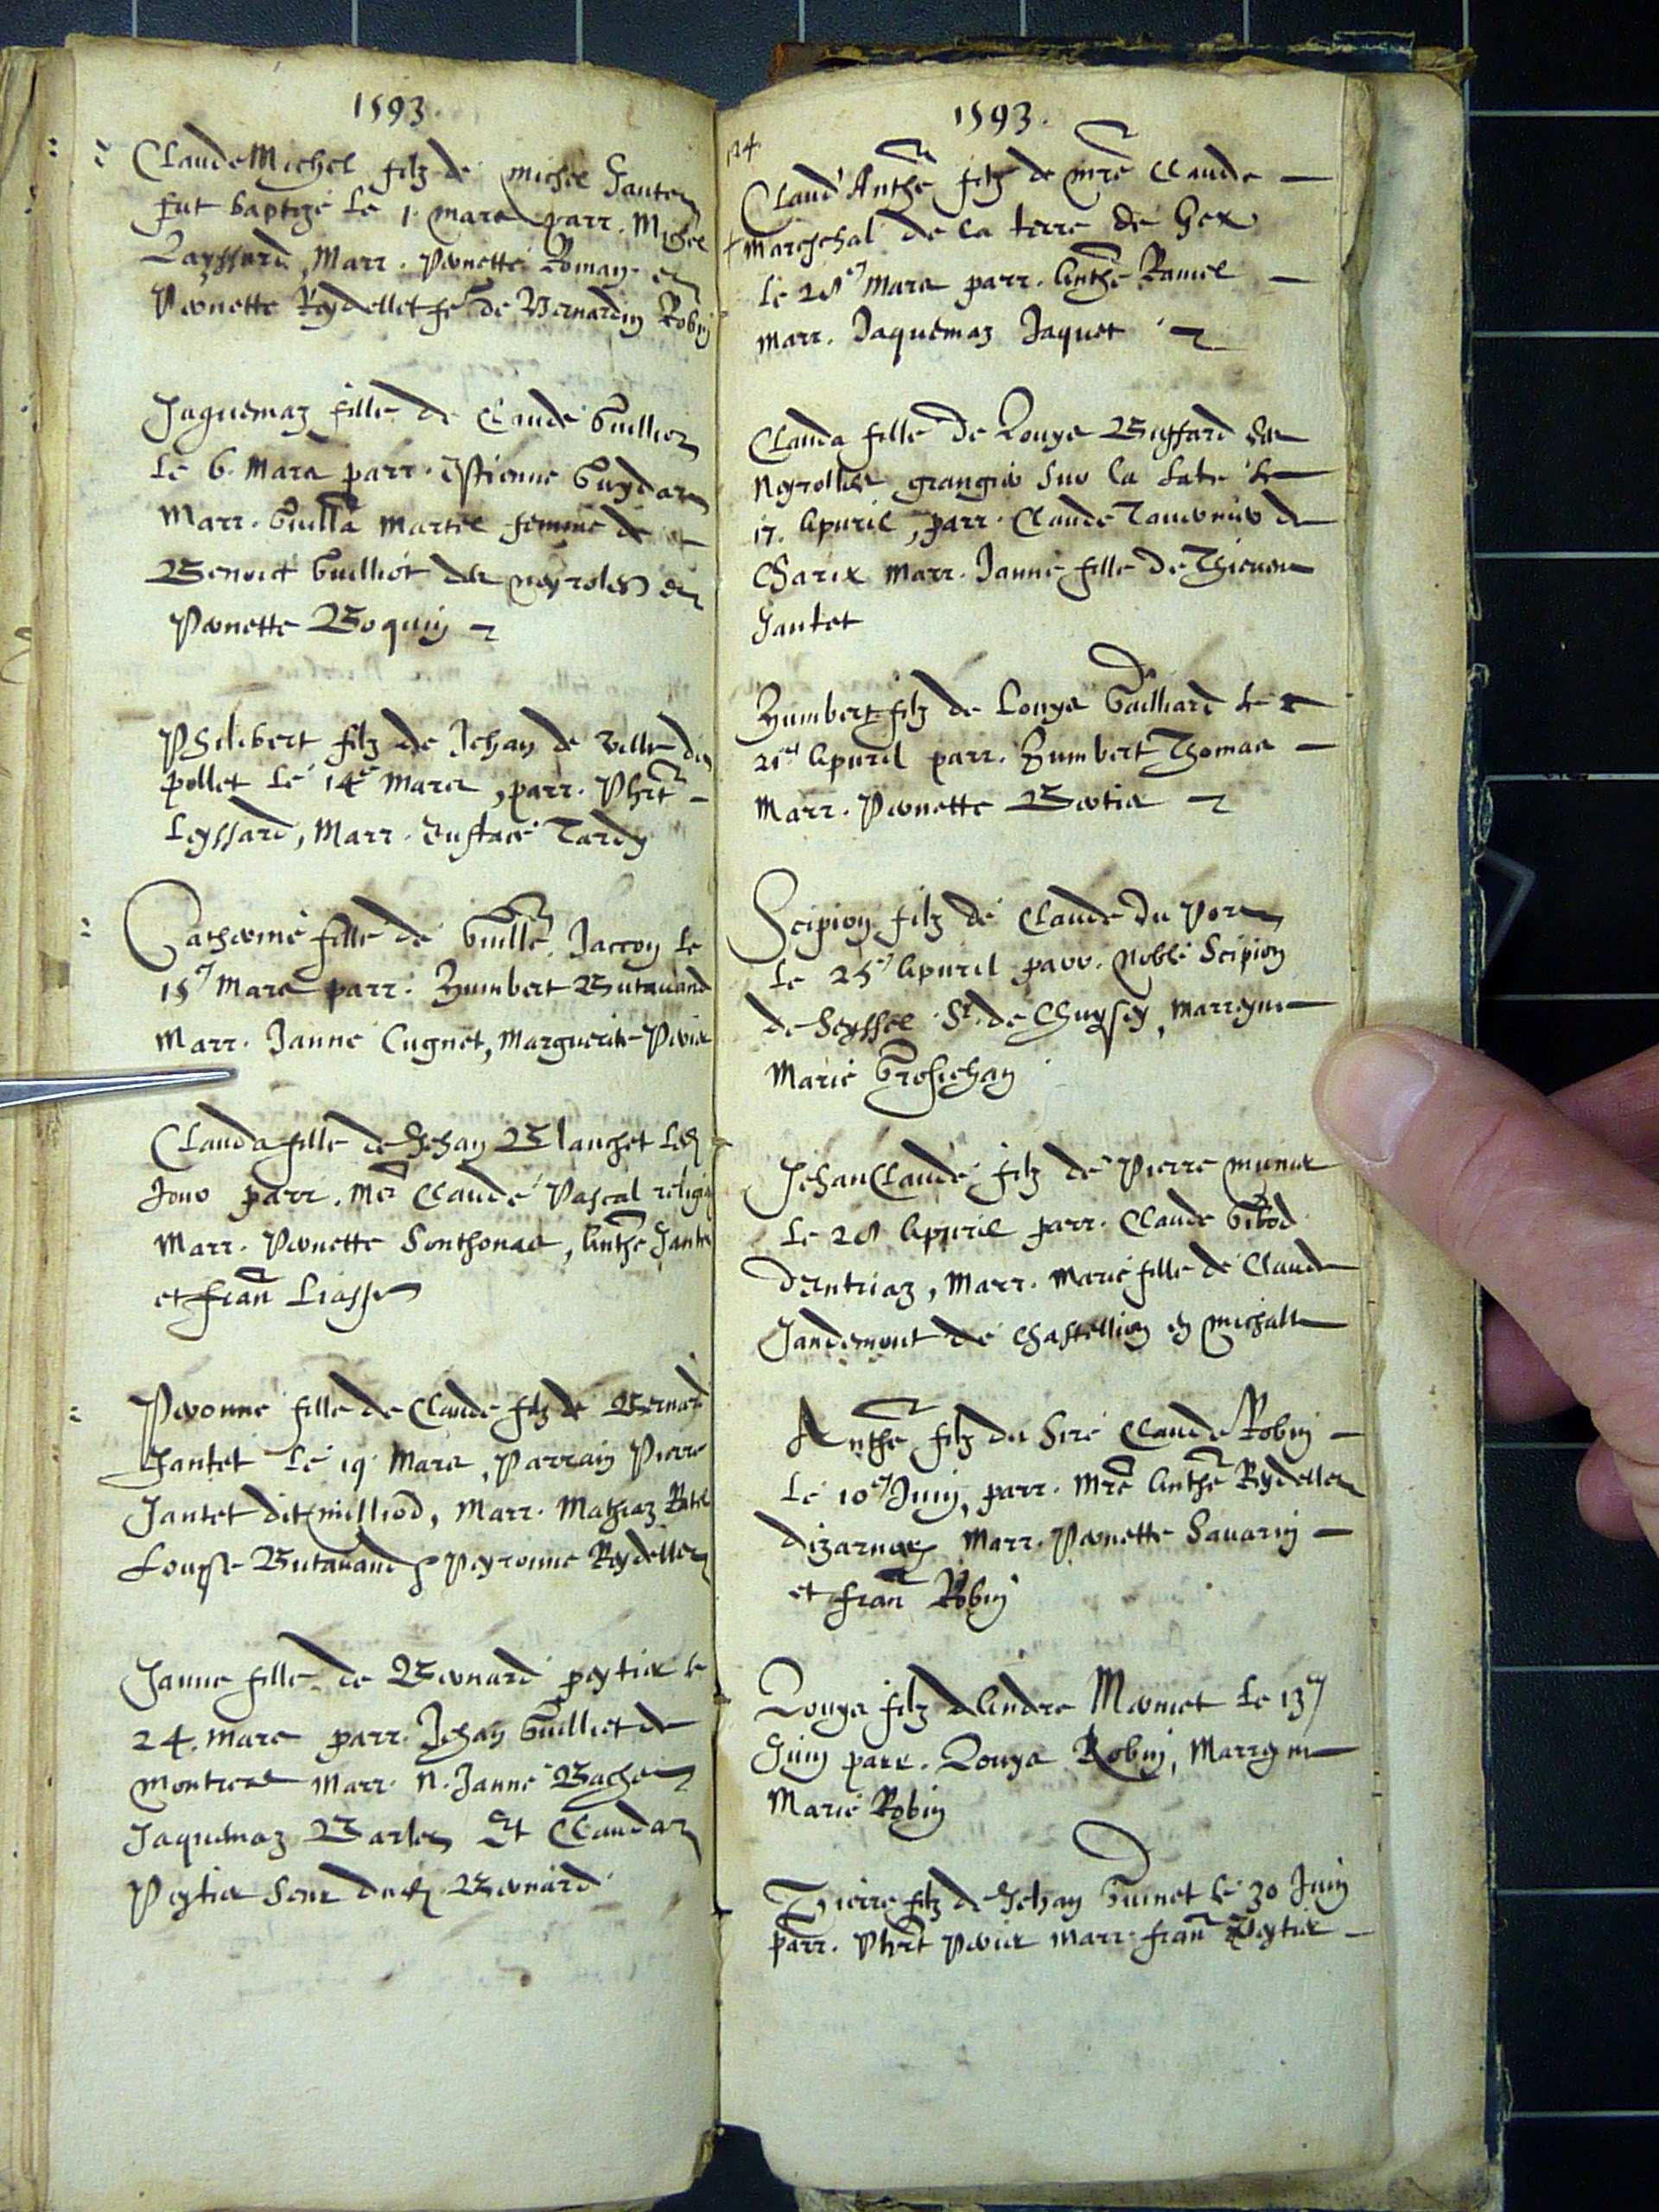 1593.
Claude Michel filz de michel Jantet
fut baptizé le 1. mars parr. Michel
Layssard, Marr. Pernette Romay et
Pernette Reydellet fe de Bernardin Robin
Jaquemaz fille de Claude Guilliet
le 6. Mars parr. Estienne Guydat
Marr. Guilla Martel femme de
Benoict Guilliot des neyroles et
Pernette Boquin
Philibert filz de Jehan de ville dit
pollet le 14e Mars, parr. Phrt
Leyssard, Marr. Eustace Tardy
Catherine fille de Guille Jarcoy le
15e Mars parr. Humbert Butavand
Marr. Janne Cugnet, Marguerite Perier
Clauda fille de Jehan Blanchet led
Jour parr. Mre Claude Pascal religi
Marr. Pernette Sonthonas, Anthe Jantet
et Fran Liasse
Peronne fille de Claude filz de Bernard
Jantet le 19 Mars, Parrain Pierre
Jantet dit milliod, Marr. Mathiaz
Louyse Butavand Peyronne Reydellet
Janne fille de Bernard peytier le
24. mars parr. Jehan Guilliet de
Montreal Marr. N. Janne Bachet
Jaquemaz Barlet Et Claudaz
Peytier seur dud Bernard
1593.
124.
Claud' Anthe filz de mre Claude
+ Mareschal de la terre de Gex
le 28e Mars parr. Anthe Ramel
marr. Jaquemaz Jaquet
Clauda fille de Louys Buffard des
Neyrolles grangier sur la
17. Apuril, parr. Claude Tavernier de
Charix Marr. Janne fille de Thieven
Jantet
Humbert filz de Louys Guilliard le
21e Apuril parr. Humbert Thomas
Marr. Pernette Bertier
Scipion filz de Claude du Port
le 25e Apuril parr. Noble Scipion
de Seyssel Sr. de Choysey, Marreyne
Marie Grosjehan
JehanClaude filz de Pierre munier
le 28 Apuril parr. Claude Gibod
dEntriaz, Marr. Marie fille de Claude
Jandemout de Chastellion en michalle
Anthe filz du Sire Claude Robin
le 10e Juin, parr. Mre Anthe Reydellet
dizarnore Marr. Pernette Savarin
et Fran Robin
Louys filz dAndre Mermet le 13e
Juin parr. Louys Robin, Marreyne
Marie Robin
Pierre filz de Jehan Guinet le 30 Juin
parr. Phrt Perier Marr. fran Peytier